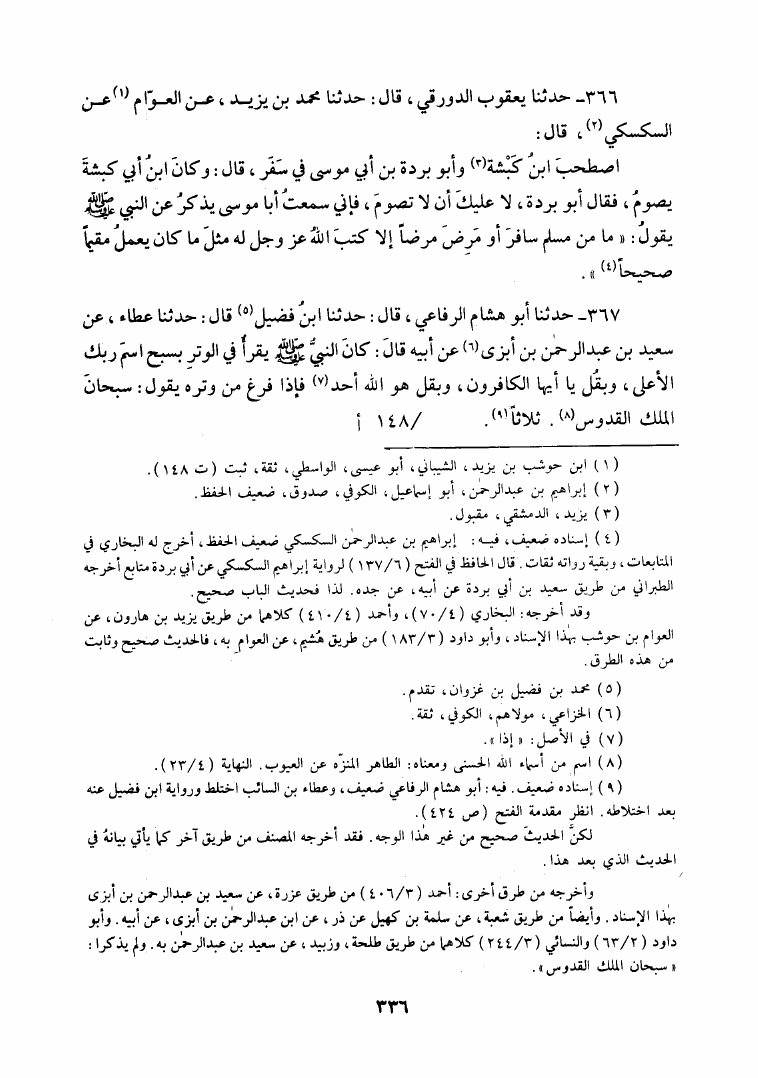 ٣٦٦ـ حدثنا يعقوب الدورقي ، قال: حدثنا محمد بن يزيــد ، عــن العــوّام (١) عــن
السكسكي(٢) ، قال:
اصطحبَ ابنُ كَبْشة(٣) وأبو بردة بن أبي موسى في سَفَر ، قال: وكانَ ابنُ أبي كبشةَ
يصومُ ، فقال أبو بردة، لا عليكَ أن لا تصومَ ، فإني سمعتُ أبا موسى يذكرُ عن النبي ﷺ
يقولُ: « ما من مسلم سافرَ أو مَرِضَ مرضاً إلا كتبَ اللهُ عز وجل له مثلَ ما كان يعملُ مقيماً
صحيحاً(٤) » .
٣٦٧ـ حدثنا أبو هشام الرفاعي ، قال: حدثنا ابنُ فضيل(٥) قال: حدثنا عطاء ، عن
سعيد بن عبدالرحمٰن بن أبزى(٦) عن أبيه قالَ: كانَ النبيُّ ﷺ يقرأُ في الوترِ بسبح اسمَ ربك
الأعلى ، وبقُل يا أيها الكافرون ، وبقل هو الله أحد(٧) فإذا فرغ من وتره يقول: سبحانَ
الملك القدوس(٨) . ثلاثاً(٩). /١٤٨ أ
(١) ابن حوشب بن يزيد، الشيباني، أبو عيسى، الواسطي، ثقة، ثبت (ت ١٤٨).
(٢) إبراهيم بن عبدالرحمٰن، أبو إسماعيل، الكوفي، صدوق، ضعيف الحفظ.
(٣) يزيد، الدمشقي، مقبول.
(٤) إسناده ضعيف، فيـه: إبراهيم بن عبدالرحمٰن السكسكي ضعيف الحفظ، أخرج له البخاري في
المتابعات، وبقية رواته ثقات. قال الحافظ في الفتح (١٣٧/٦) لرواية إبراهيم السكسكي عن أبي بردة متابع أخرجه
الطبراني من طريق سعيد بن أبي بردة عن أبيه، عن جده. لذا فحديث الباب صحيح.
وقد أخرجه: البخاري (٧٠/٤)، وأحمد (٤١٠/٤) كلاهما من طريق يزيد بن هارون، عن
العوام بن حوشب بهٰذا الإسناد، وأبو داود (١٨٣/٣) من طريق هُشيم، عن العوام به، فالحديث صحيح وثابت
من هذه الطرق.
(٥) محمد بن فضيل بن غزوان، تقدم.
(٦) الخزاعي، مولاهم، الكوفي، ثقة.
(٧) في الأصل: « إذا ».
(٨) اسم من أسماء الله الحسنى ومعناه: الطاهر المنزّه عن العيوب. النهاية (٢٣/٤).
(٩) إسناده ضعيف. فيه: أبو هشام الرفاعي ضعيف، وعطاء بن السائب اختلط ورواية ابن فضيل عنه
بعد اختلاطه. انظر مقدمة الفتح (ص ٤٢٤).
لكنَّ الحديثَ صحيح من غير هٰذا الوجه. فقد أخرجه المصنف من طريق آخر كما يأتي بيانهُ في
الحديث الذي بعد هذا.
وأخرجه من طرق أخرى: أحمد (٤٠٦/٣) من طريق عزرة، عن سعيد بن عبدالرحمن بن أبزى
بهٰذا الإسناد. وأيضاً من طريق شعبة، عن سلمة بن كهيل عن ذر ، عن ابن عبدالرحمٰن بن أبزى، عن أبيه. وأبو
داود (٦٣/٢) والنسائي (٢٤٤/٣) كلاهما من طريق طلحة، وزبيد، عن سعيد بن عبدالرحمٰن به. ولم يذكرا:
« سبحان الملك القدوس».
٣٣٦